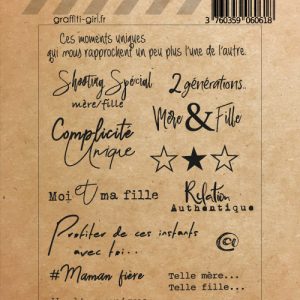 graffiti-girl.fr
3 760359 060618
Ces moments uniques
qui nous rapprochent un peu plus l'une de l'autre.
Shooting Spécial
mère/fille
2 générations..
Mère & Fille
Complicité
Unique
Moi et ma fille
Relation
Authentique
Profiter de ces instants
avec toi..
#Maman fière
Telle mère...
Telle fille...